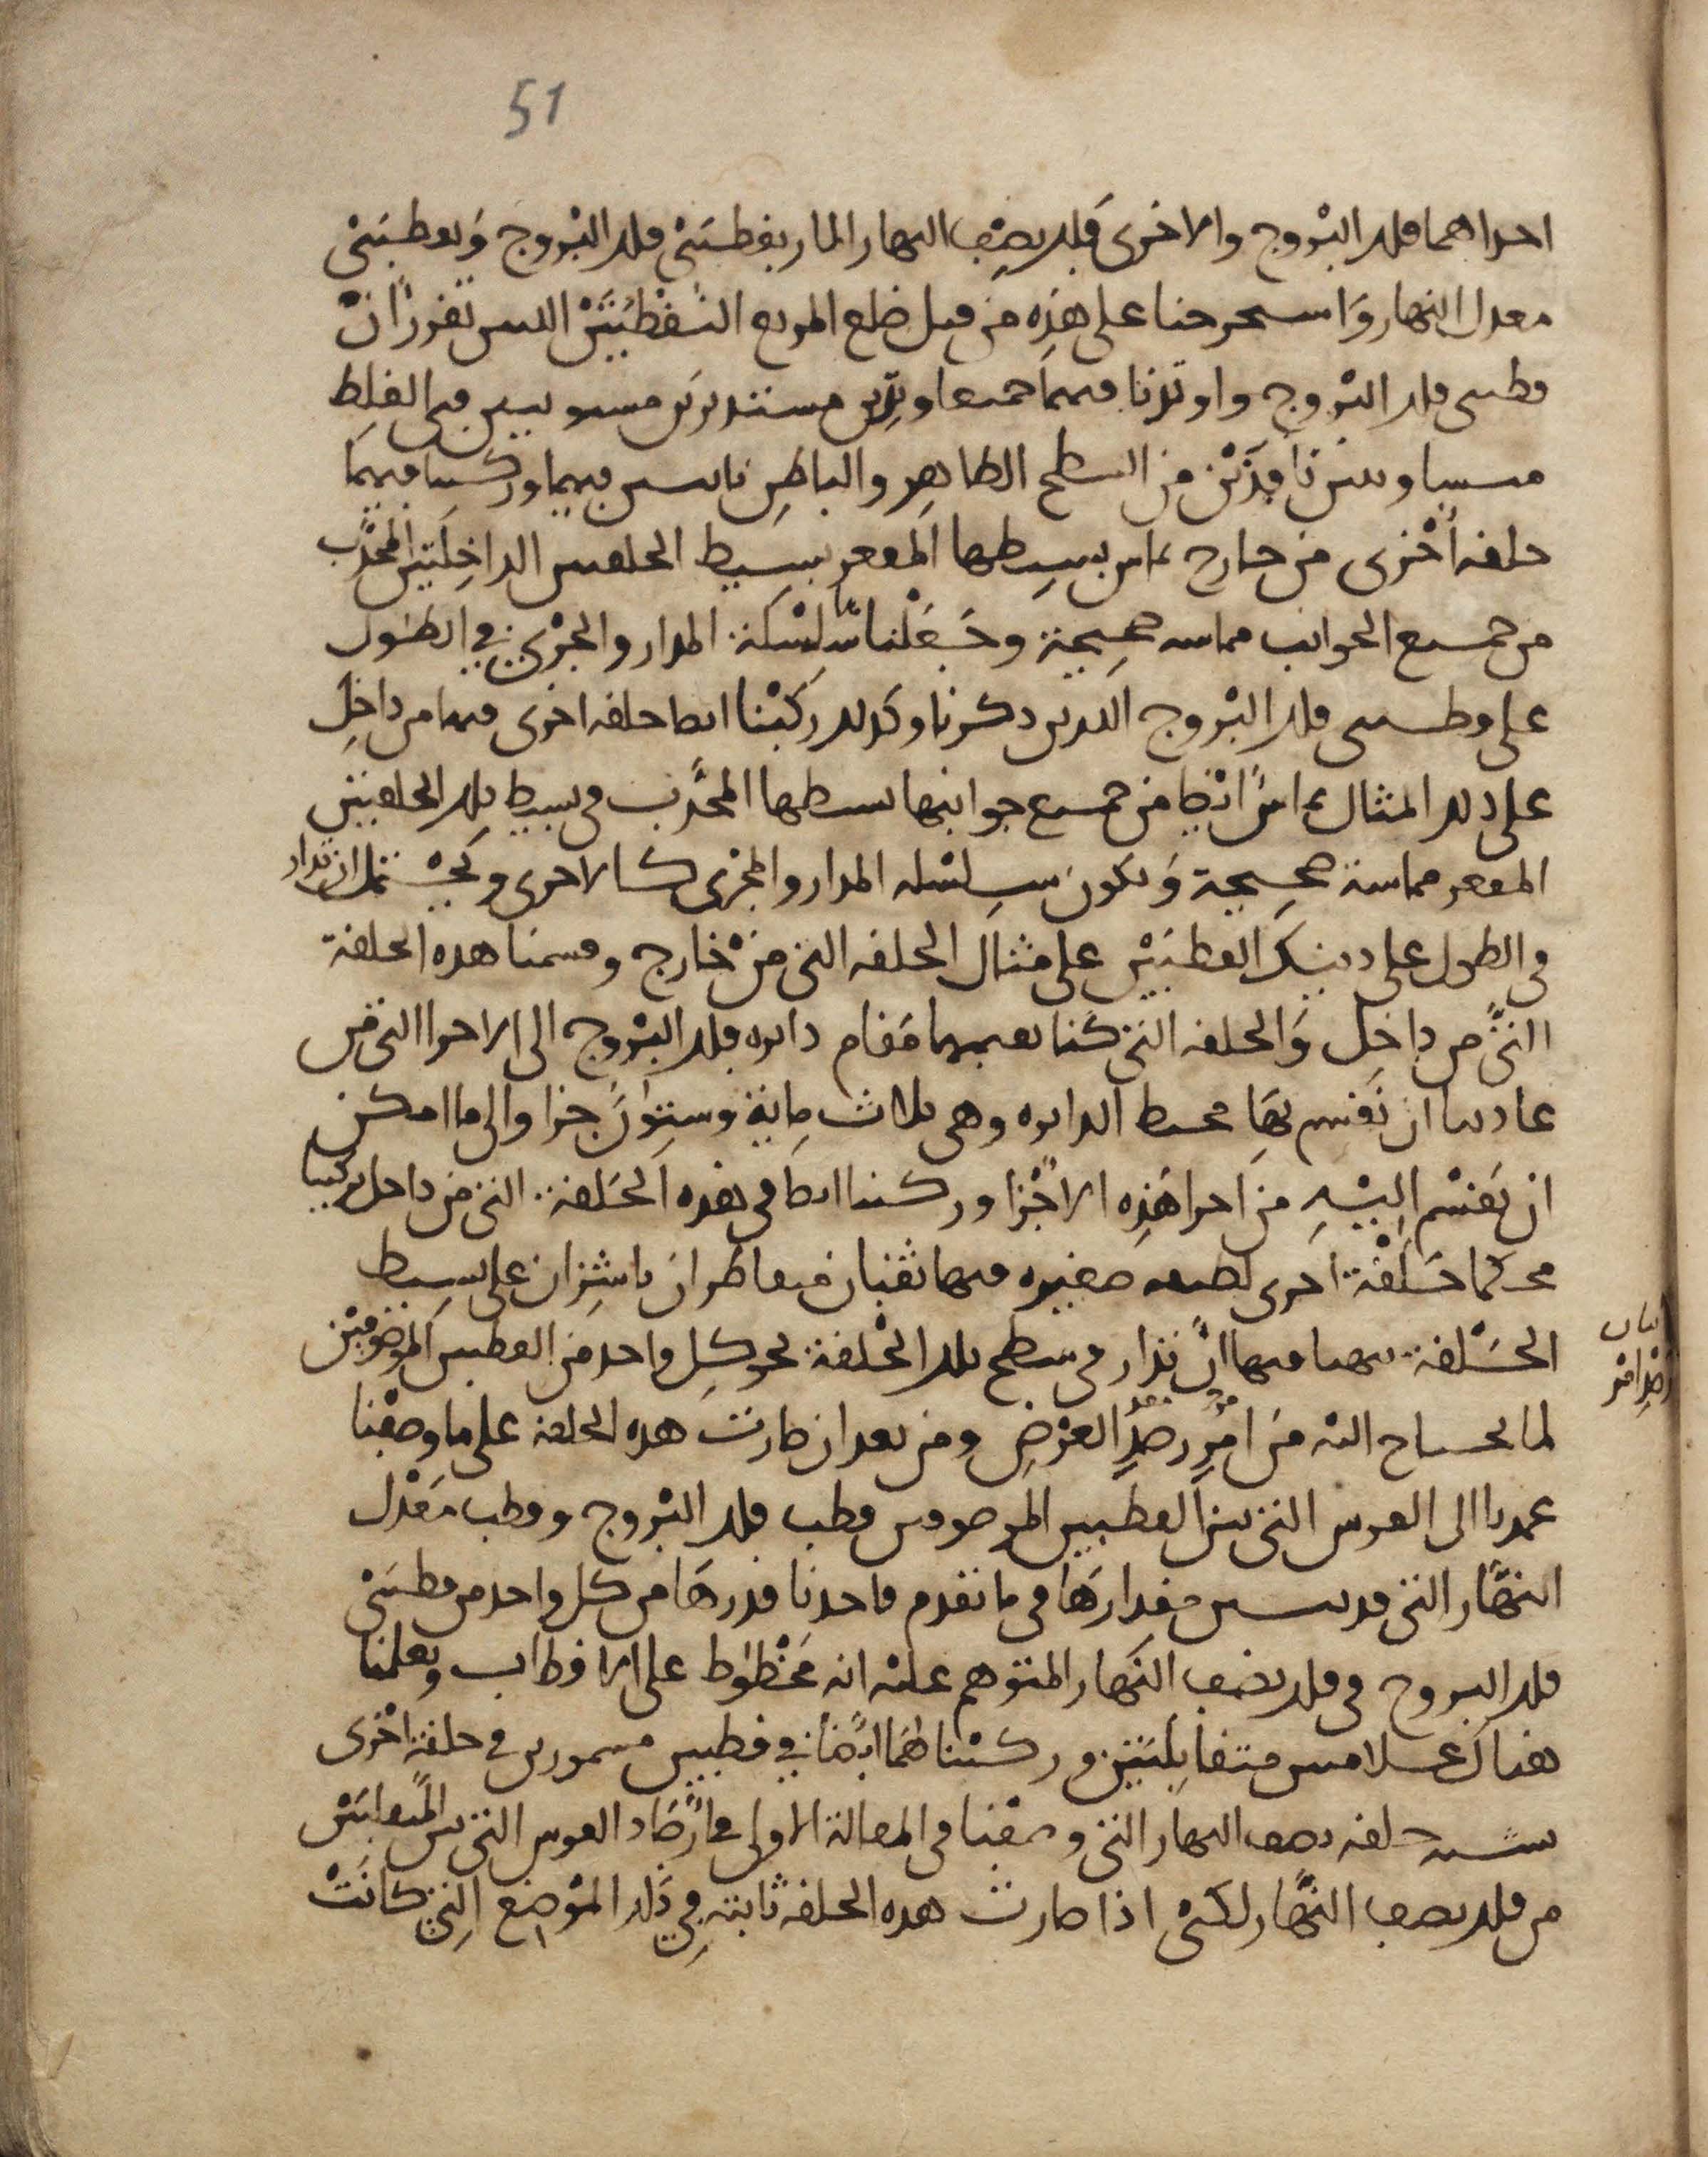 51
احداهما فلك البروج والاخرى فلك نصف النهار المار بقطبي فلك البروج وبقطبي
معدل النهار واستخرجنا على هذه من قبل ضلع المربع النقطتين اللتين تفرزان
قطبي فلك البروج واوتدنا فيهما جميعا وتدين مستديرين مستويين في الغلظ
متساويين نافذين من السطح الظاهر والباطن ناتيين فيهما وركبنا فيهما
حلقة اخرى من خارج تماس ببسيطها المقعر بسيط الحلقتين الداخلتين المحدب
من جميع الجوانب مماسة صحيحة وجعلناها سلسلة المدار والمجرى في الطول
على قطبي فلك البروج اللذين ذكرنا وكذلك ركبنا ايضا حلقة اخرى فيهما من داخل
على ذلك المثال تماس ايضا من جميع جوانبها بسيطها المحدب في بسيط تلك الحلقتين
المقعر مماسة صحيحة وتكون سلسلة المدار والمجرى كالاخرى وتحتمل ان تدار
في الطول على ذينك القطبين على مثال الحلقة التي من خارج وقسمنا هذه الحلقة
التي من داخل والحلقة التي كنا نقيمها مقام دائرة فلك البروج الى الاجزا التي من
عادتنا ان نقسم بها محيط الدائرة وهي ثلاث ماية وستون جزا والى ما امكن
ان يقسم اليه من اجزا هذه الاجزا وركبنا ايضا في هذه الحلقة التي من داخل تركيبا
محكما حلقة اخرى لطيفة صغيرة فيها ثقبان متقاطران ناشزان على بسيط
الحلقة يتهيا فيها ان تدار في سطح تلك الحلقة نحو كل واحد من القطبين الموصوفين
لما يحتاج اليه من امر رصد العرض ومن بعد ان صارت هذه الحلقة على ما وصفنا
عمدنا الى القوس التي بين القطبين الموصوفين قطب فلك البروج وقطب معدل
النهار التي قد تبين مقدارها في ما تقدم فاخذنا قدرها من كل واحد من قطبي
فلك البروج في فلك نصف النهار المتوهم عليه انه مخطوط على الاقطاب وتعلمنا
هناك علامتين متقابلتين وركبناهما ايضا في قطبين مسمورين في حلقة اخرى
تشبه حلقة نصف النهار التي وصفنا في المقالة الاولى في ارصاد القوس التي بين المنقلبين
من فلك نصف النهار لكي اذا صارت هذه الحلقة ثابتة في ذلك الموضع التي كانت